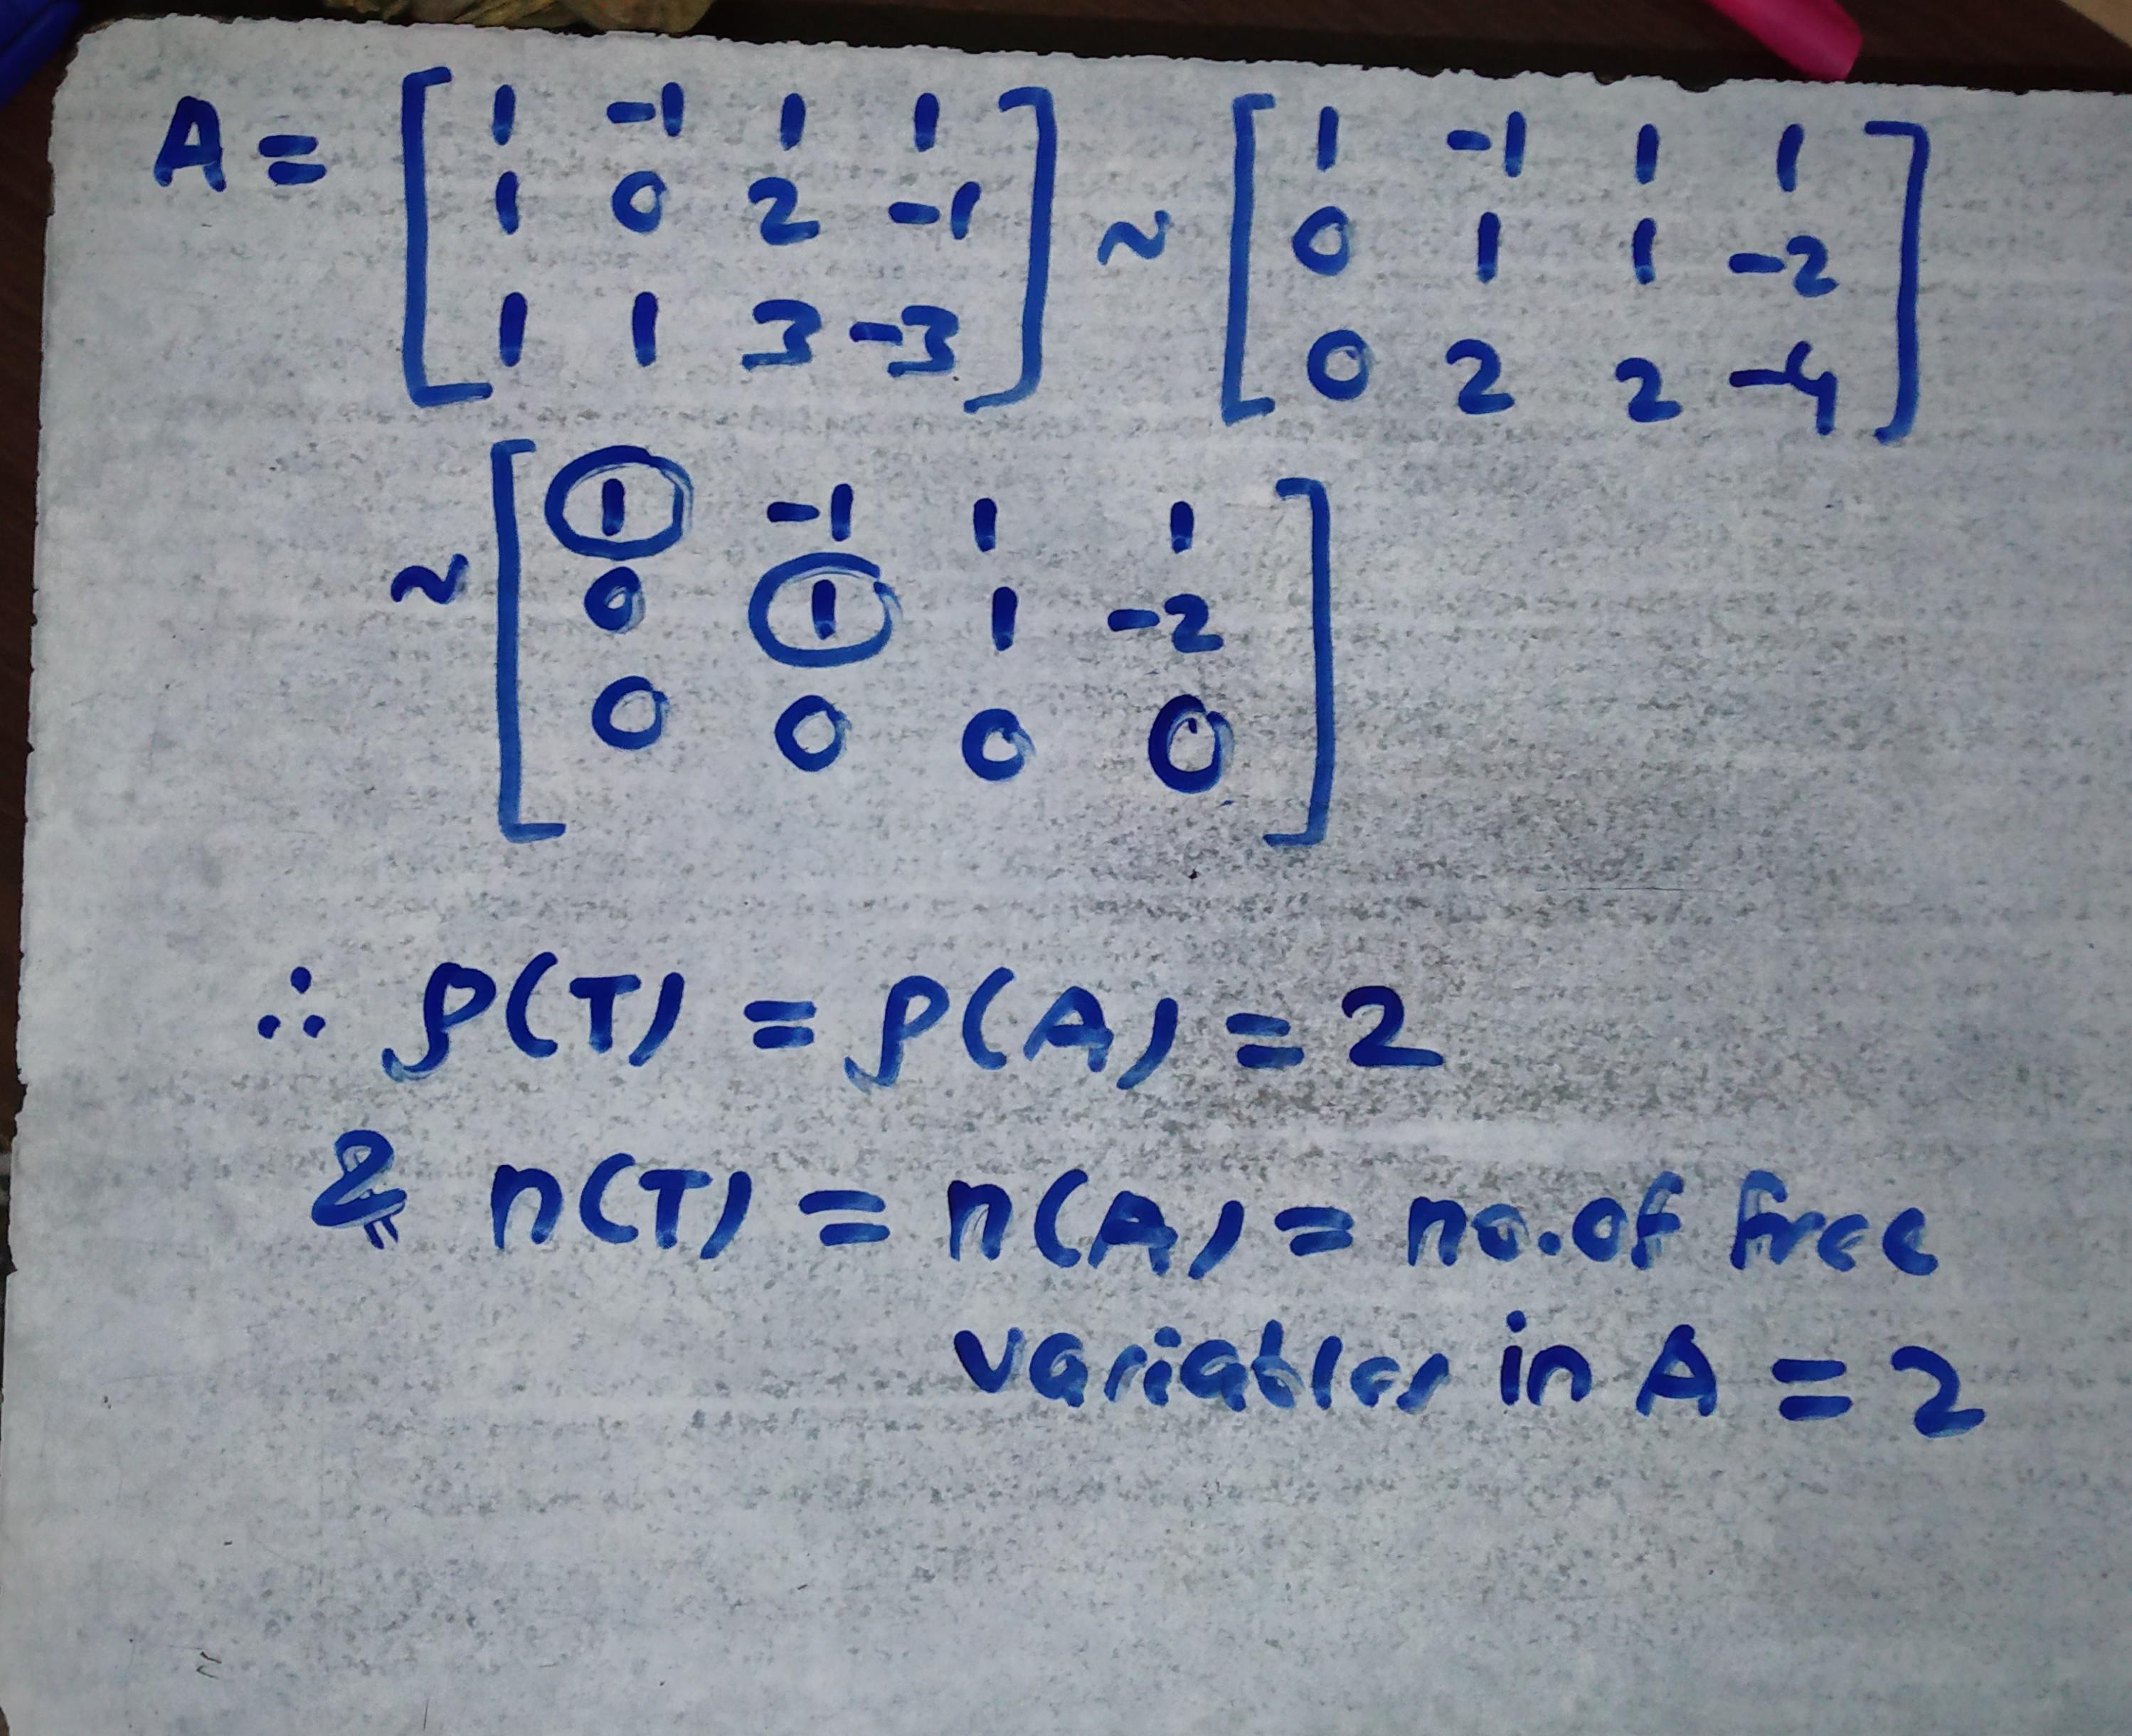 A = [ 1 -1 1 1 ; 1 0 2 -1 ; 1 1 3 -3 ] ~ [ 1 -1 1 1 ; 0 1 1 -2 ; 0 2 2 -4 ]
~ [ 1 -1 1 1 ; 0 1 1 -2 ; 0 0 0 0 ]
∴ ρ(T) = ρ(A) = 2
& n(T) = n(A) = no. of free
variables in A = 2